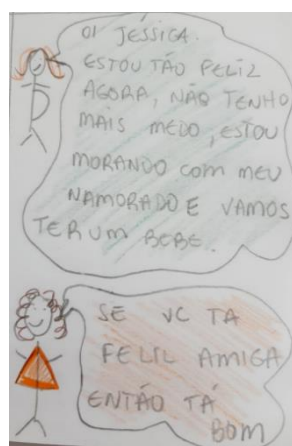 OI JÉSSICA.
ESTOU TÃO FELIZ
AGORA, NÃO TENHO
MAIS MEDO, ESTOU
MORANDO COM MEU
NAMORADO E VAMOS
TER UM BEBE.
SE VC TA
FELIL AMIGA
ENTÃO TÁ
BOM